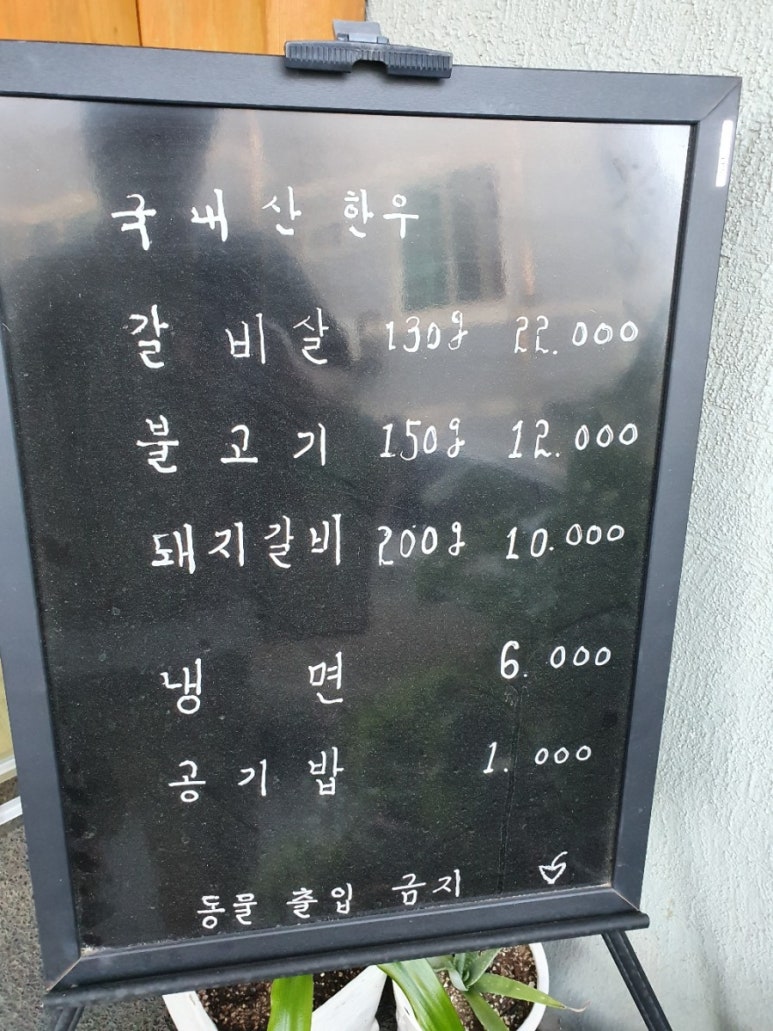 국내산 한우
갈비살 130g 22.000
불고기 150g 12.000
돼지갈비 200g 10.000
냉면 6.000
공기밥 1.000
동물 출입 금지